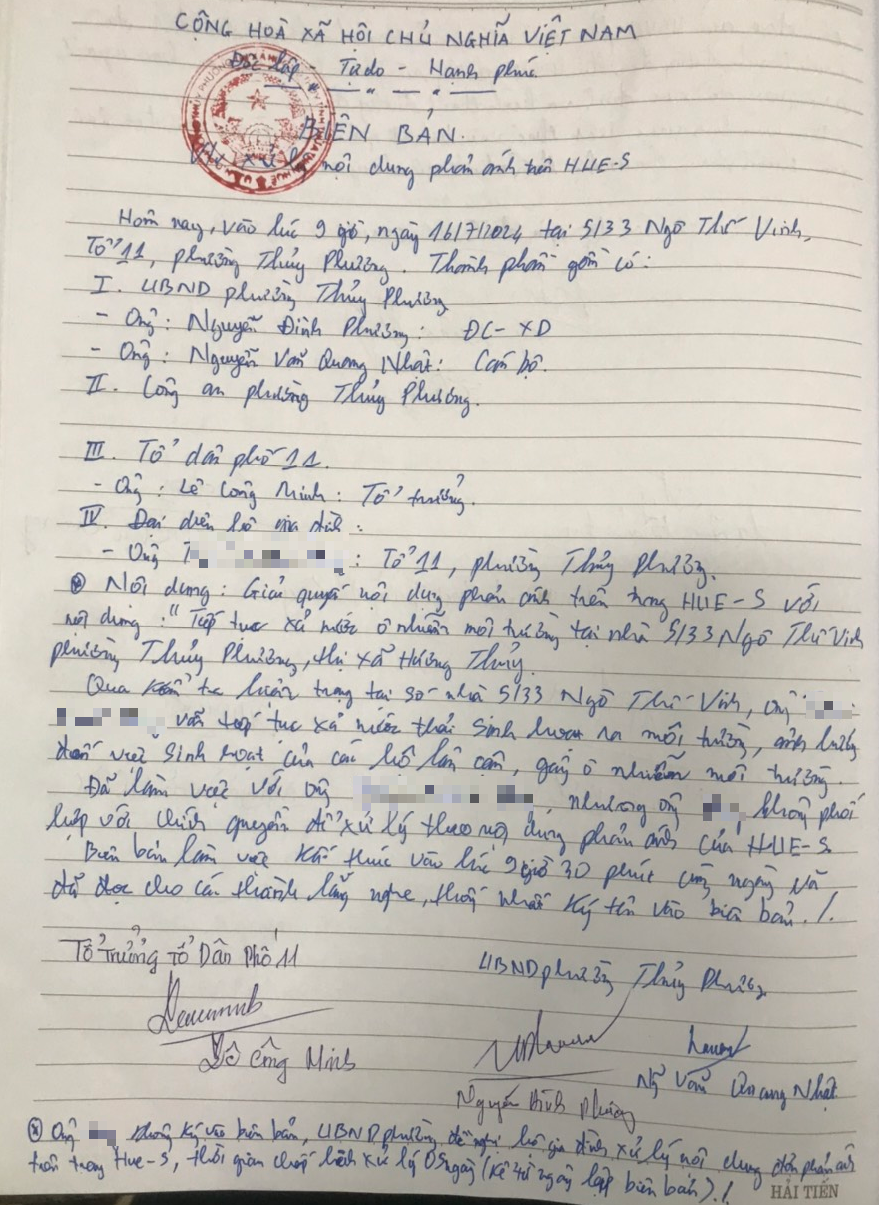 CỘNG HOÀ XÃ HỘI CHỦ NGHĨA VIỆT NAM
Độc lập - Tự do - Hạnh phúc
BIÊN BẢN
V/v xử lý nội dung phản ánh trên HUE-S
Hôm nay, vào lúc 9 giờ, ngày 16/7/2024 tại 5/33 Ngô Thế Vinh,
Tổ 11, phường Thủy Phương. Thành phần gồm có:
I. UBND phường Thủy Phương
- Ông: Nguyễn Đình Phương: ĐC-XD
- Ông: Nguyễn Văn Quang Nhật: Cán bộ.
II. Công an phường Thủy Phương.
III. Tổ dân phố 11.
- Ông: Lê Công Minh: Tổ trưởng.
IV. Đại diện hộ gia đình:
- Ông : Tổ 11, phường Thủy Phương.
⊛ Nội dung: Giải quyết nội dung phản ánh trên trang HUE-S với
nội dung: "Tiếp tục xả nước ô nhiễm môi trường tại nhà 5/33 Ngô Thế Vinh
phường Thủy Phương, thị xã Hương Thủy
Qua kiểm tra hiện trạng tại số nhà 5/33 Ngô Thế Vinh, ông
vẫn tiếp tục xả nước thải sinh hoạt ra môi trường, ảnh hưởng
đến việc sinh hoạt của các hộ lân cận, gây ô nhiễm môi trường.
Đã làm việc với ông , nhưng ông không phối
hợp với chính quyền để xử lý theo nội dung phản ánh của HUE-S.
Biên bản làm việc kết thúc vào lúc 9 giờ 30 phút cùng ngày và
đã đọc cho các thành lắng nghe, thống nhất ký tên vào biên bản./.
Tổ trưởng Tổ Dân Phố 11
UBND phường Thủy Phương
Lê Công Minh
Nguyễn Đình Phương
Ng Văn Quang Nhật
⊛ Ông không ký vào biên bản, UBND phường đề nghị hộ gia đình xử lý nội dung phản ánh
trên trang Hue-S, thời gian chấp hành xử lý 05 ngày (kể từ ngày lập biên bản)./.
HẢI TIẾN